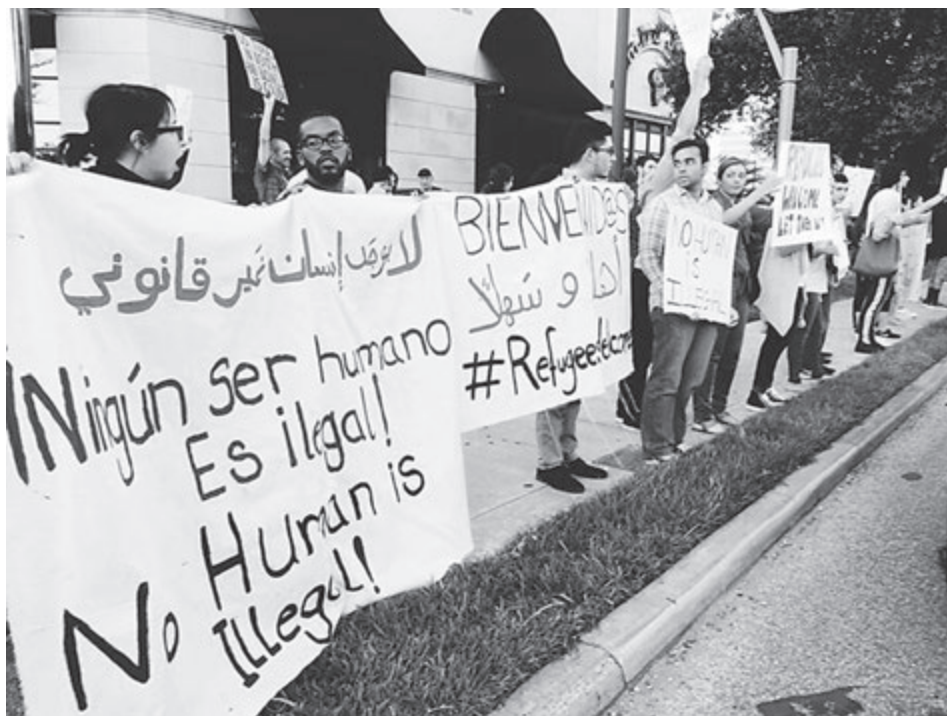 لا يوجد إنسان غير قانوني
¡Ningún ser humano
Es ilegal!
No Human is
Illegal!
BIENVENID@S
أهلا و سهلًا
#RefugeesWelcome
NO HUMAN
IS
ILLEGAL
REFUGEES
WELCOME
LET THEM IN